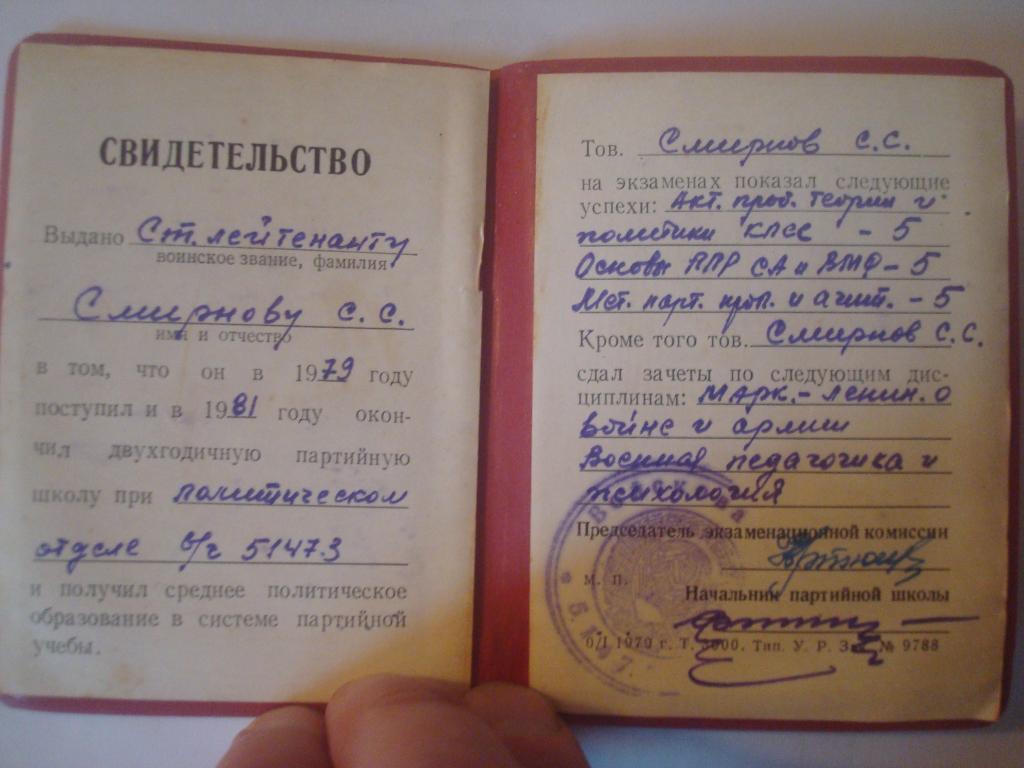 СВИДЕТЕЛЬСТВО
Выдано Ст. лейтенанту
воинское звание, фамилия
Смирнову С.С.
имя и отчество
в том, что он в 1979 году
поступил и в 1981 году окон-
чил двухгодичную партийную
школу при политическом
отделе в/ч 51473
и получил среднее политическое
образование в системе партийной
учебы.
Тов. Смирнов С.С.
на экзаменах показал следующие
успехи: Акт. проб. теории и
политики КПСС - 5
Основы ППР СА и ВМФ - 5
Ист. парт. проп. и агит. - 5
Кроме того тов. Смирнов С.С.
сдал зачеты по следующим дис-
циплинам: Марк.-ленин. о
войне и армии
Военная педагогика и
психология
Председатель экзаменационной комиссии
м. п.
Начальник партийной школы
0/1 1979 г. Т. 3000. Тип. У. Р. Зак. № 9788